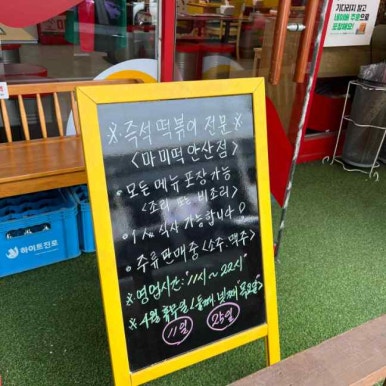 기다리지 말고
네이버 주문으로
포장해요!
※ 즉석 떡볶이 전문 ※
<마미떡 안산점>
• 모든 메뉴 포장 가능
<조리 또는 비조리>
• 1人 식사 가능합니다
• 주류판매중 <소주, 맥주>
※ 영업시간: "11시 ~ 22시"
※ 4월 휴무일 (둘째, 넷째 목요일)
11일 25일
하이트진로